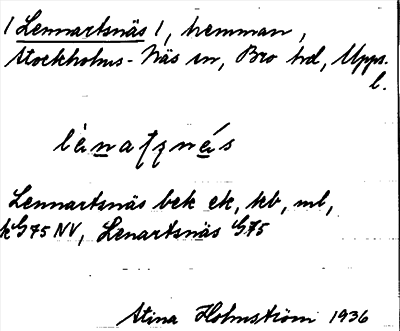 / Lennartsnäs /, hemman,
Stockholms-Näs sn, Bro hd, Upps.
l.
Lennartsnäs bek ek, kb, ml,
75 NV, Lenartsnäs 75
Stina Holmström 1936